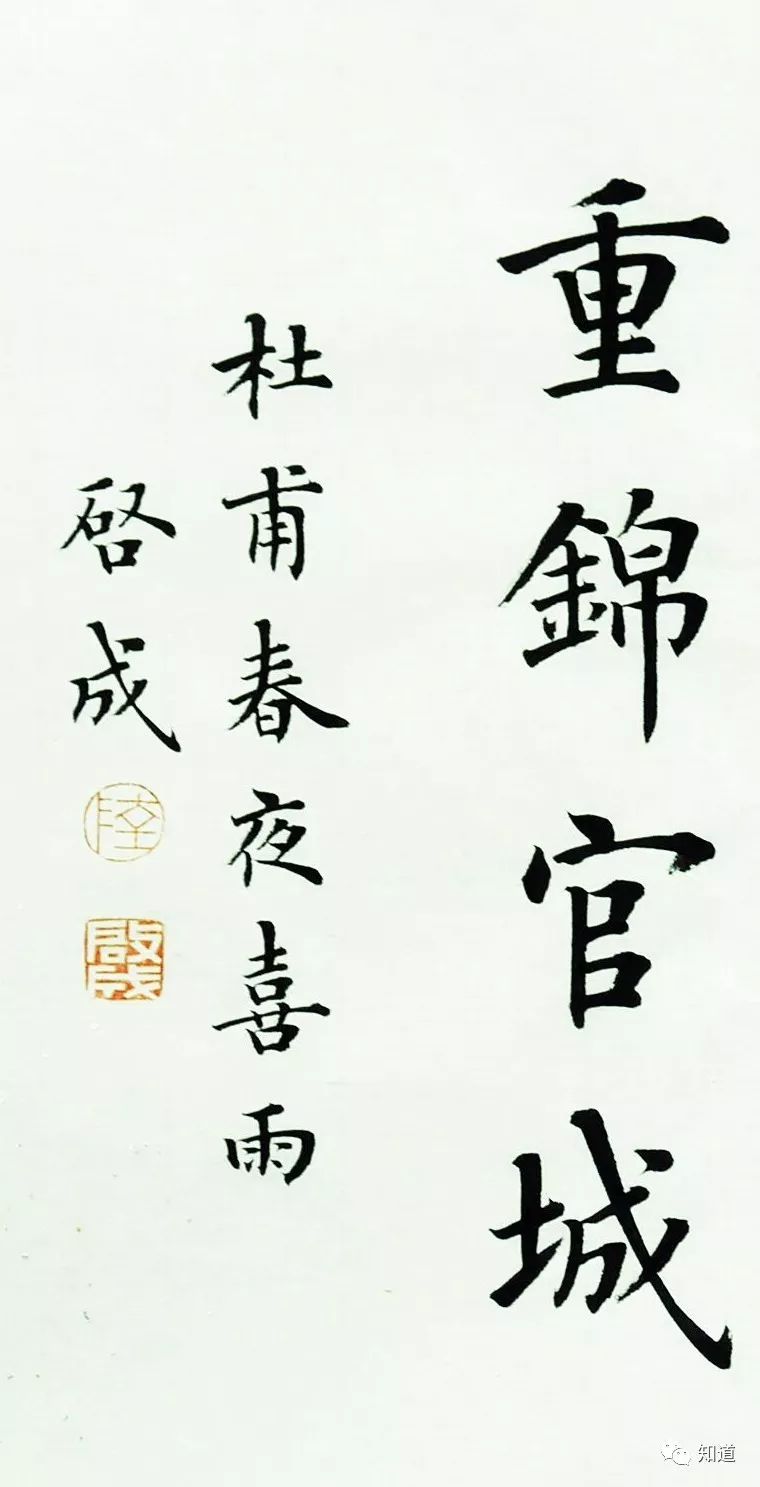 重錦官城
杜甫春夜喜雨
啓成
陸
啟成
知道